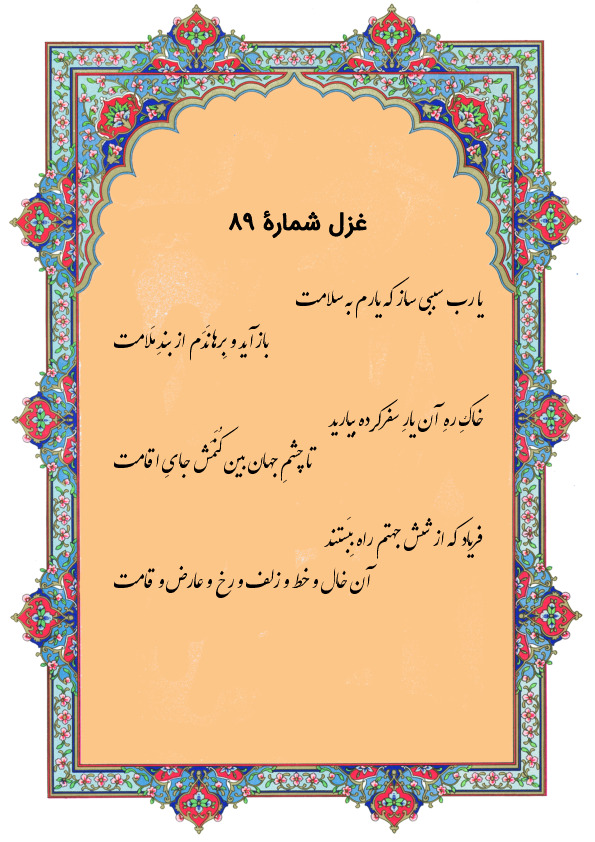 غزل شمارهٔ ۸۹
یا رب سببی ساز که یارم به سلامت
بازآید و بِرهانَدَم از بندِ مَلامت
خاکِ رهِ آن یارِ سفرکرده بیارید
تا چشمِ جهان بین کُنَمَش جایِ اقامت
فریاد که از شش جهتم راه بِبَستند
آن خال و خط و زلف و رخ و عارض و قامت